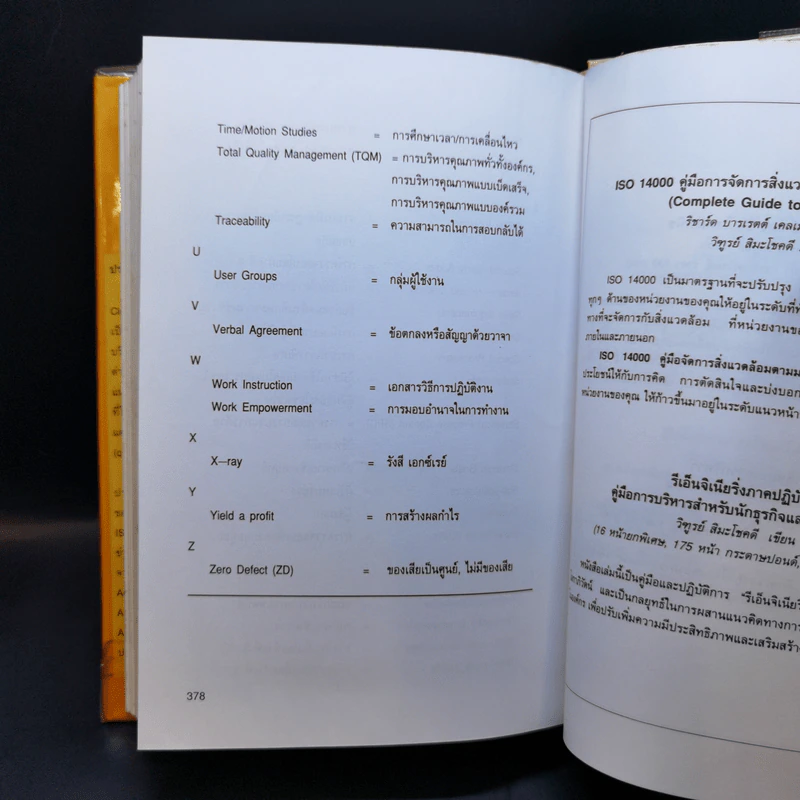 Time/Motion Studies = การศึกษาเวลา/การเคลื่อนไหว
Total Quality Management (TQM) = การบริหารคุณภาพทั่วทั้งองค์กร,
การบริหารคุณภาพแบบเบ็ดเสร็จ,
การบริหารคุณภาพแบบองค์รวม
Traceability = ความสามารถในการสอบกลับได้
U
User Groups = กลุ่มผู้ใช้งาน
V
Verbal Agreement = ข้อตกลงหรือสัญญาด้วยวาจา
W
Work Instruction = เอกสารวิธีการปฏิบัติงาน
Work Empowerment = การมอบอำนาจในการทำงาน
X
X-ray = รังสี เอกซ์เรย์
Y
Yield a profit = การสร้างผลกำไร
Z
Zero Defect (ZD) = ของเสียเป็นศูนย์, ไม่มีของเสีย
378
ISO 14000 คู่มือการจัดการสิ่งแวด
(Complete Guide to
ริชาร์ด บาร์เรตต์
วิฑูรย์ สิมะโชคดี
ISO 14000 เป็นมาตรฐานที่จะปรับปรุง
ทุกๆ ด้านของหน่วยงานของคุณให้อยู่ในระดับที่
ทางที่จะจัดการกับสิ่งแวดล้อม ที่หน่วยงานของ
ภายในและภายนอก
ISO 14000 คู่มือจัดการสิ่งแวดล้อมตาม
ประโยชน์ให้กับการคิด การตัดสินใจและบ่งบอก
หน่วยงานของคุณ ให้ก้าวขึ้นมาอยู่ในระดับแนวหน้า
รีเอ็นจิเนียริ่งภาคปฏิบั
คู่มือการบริหารสำหรับนักธุรกิจและ
วิฑูรย์ สิมะโชคดี เขียน
(16 หน้ายกพิเศษ, 175 หน้า กระดาษปอนด์,
หนังสือเล่มนี้เป็นคู่มือและปฏิบัติการ "รีเอ็นจิเนียริ่
และเป็นกลยุทธ์ในการผสานแนวคิดทางการ
องค์กร เพื่อปรับเพิ่มความมีประสิทธิภาพและเสริมสร้าง